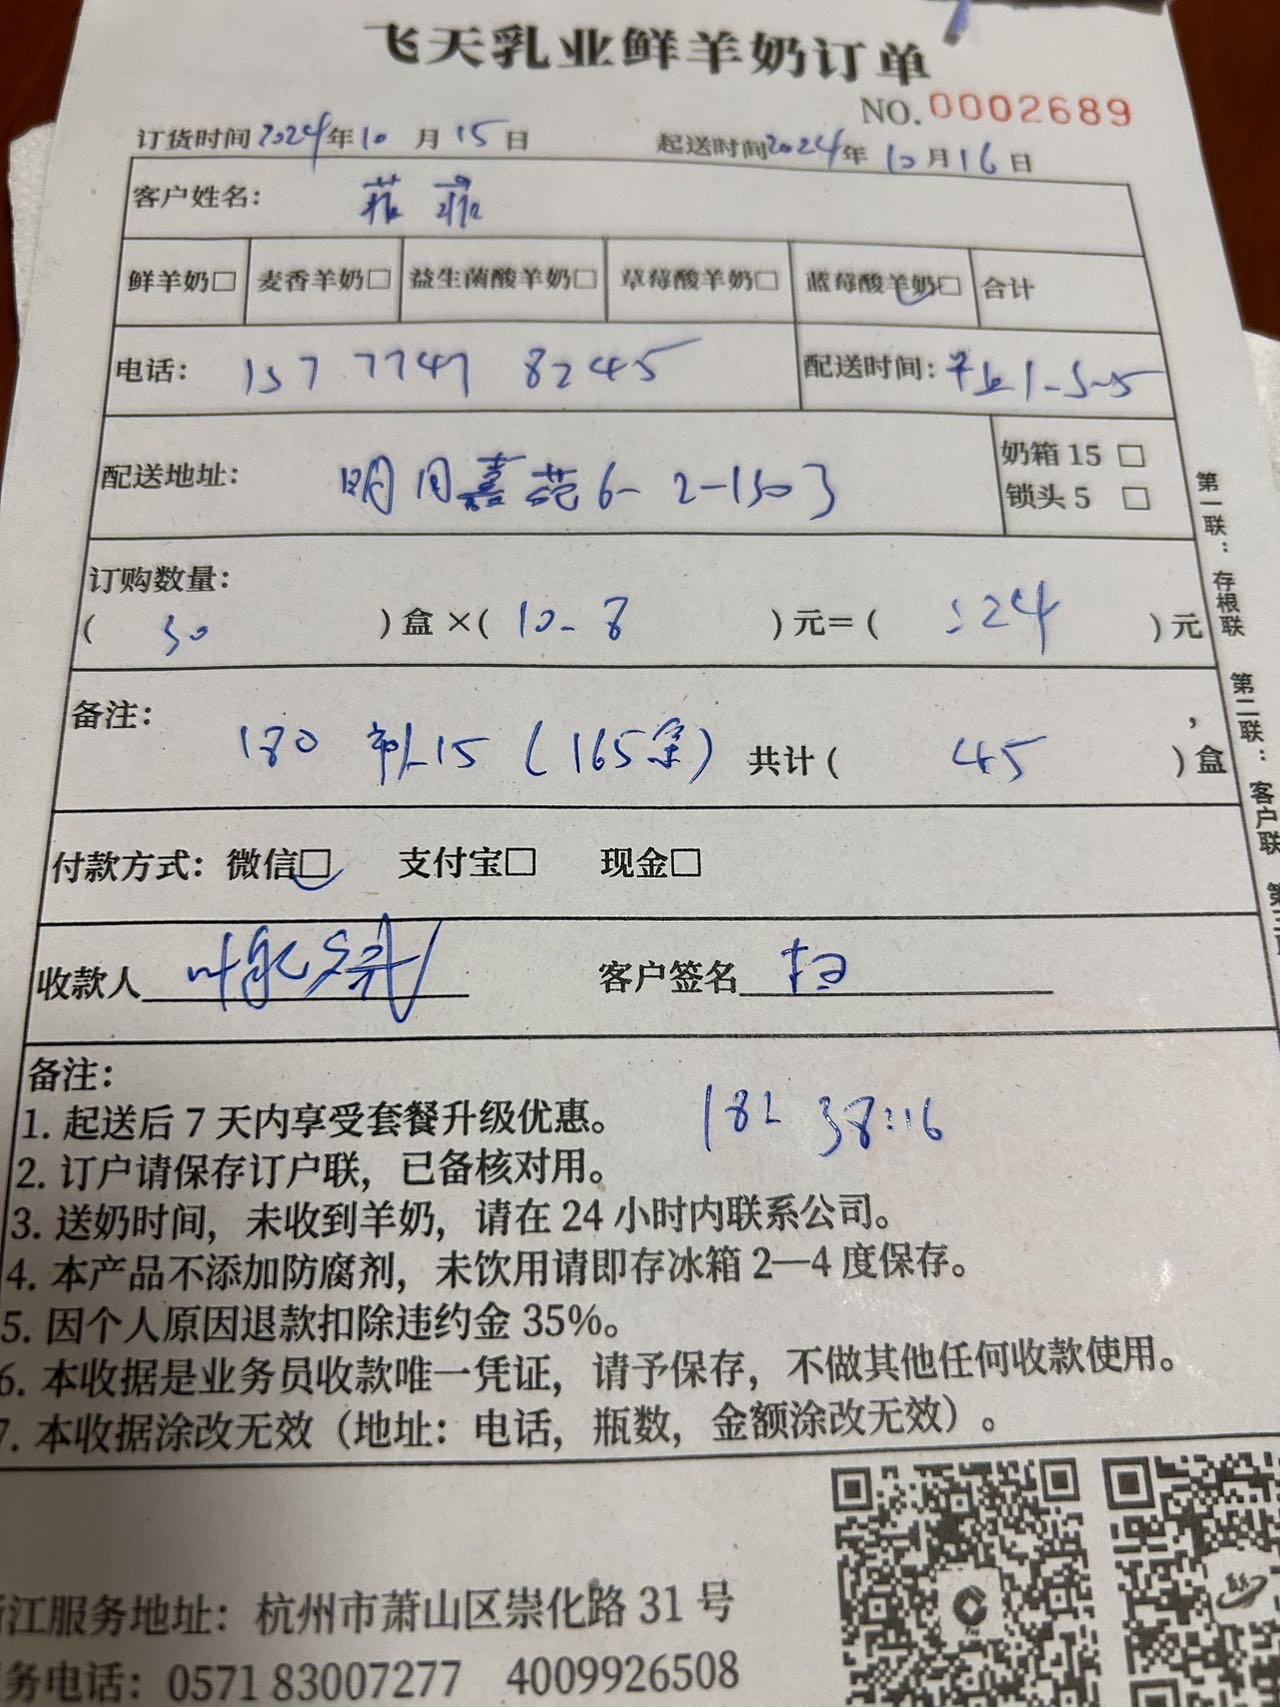 飞天乳业鲜羊奶订单
NO.0002689
订货时间2024年10月15日 起送时间2024年10月16日
客户姓名：菲菲
鲜羊奶□ 麦香羊奶□ 益生菌酸羊奶□ 草莓酸羊奶□ 蓝莓酸羊奶□ 合计
电话：157 7747 8245 配送时间：1-3-5
配送地址：明月嘉苑6-2-1503
奶箱 15 □
锁头 5 □
订购数量：
(30)盒×(10-8)元=(324)元
备注：
180 15（165 ） 共计(45)盒
付款方式：微信□ 支付宝□ 现金□
收款人 客户签名
备注：
1. 起送后 7 天内享受套餐升级优惠。
182 38:16
2. 订户请保存订户联，已备核对用。
3. 送奶时间，未收到羊奶，请在 24 小时内联系公司。
4. 本产品不添加防腐剂，未饮用请即存冰箱 2—4 度保存。
5. 因个人原因退款扣除违约金 35%。
6. 本收据是业务员收款唯一凭证，请予保存，不做其他任何收款使用。
7. 本收据涂改无效（地址：电话，瓶数，金额涂改无效）。
江服务地址：杭州市萧山区崇化路 31 号
务电话：0571 83007277 4009926508
第一联：存根联 第二联：客户联